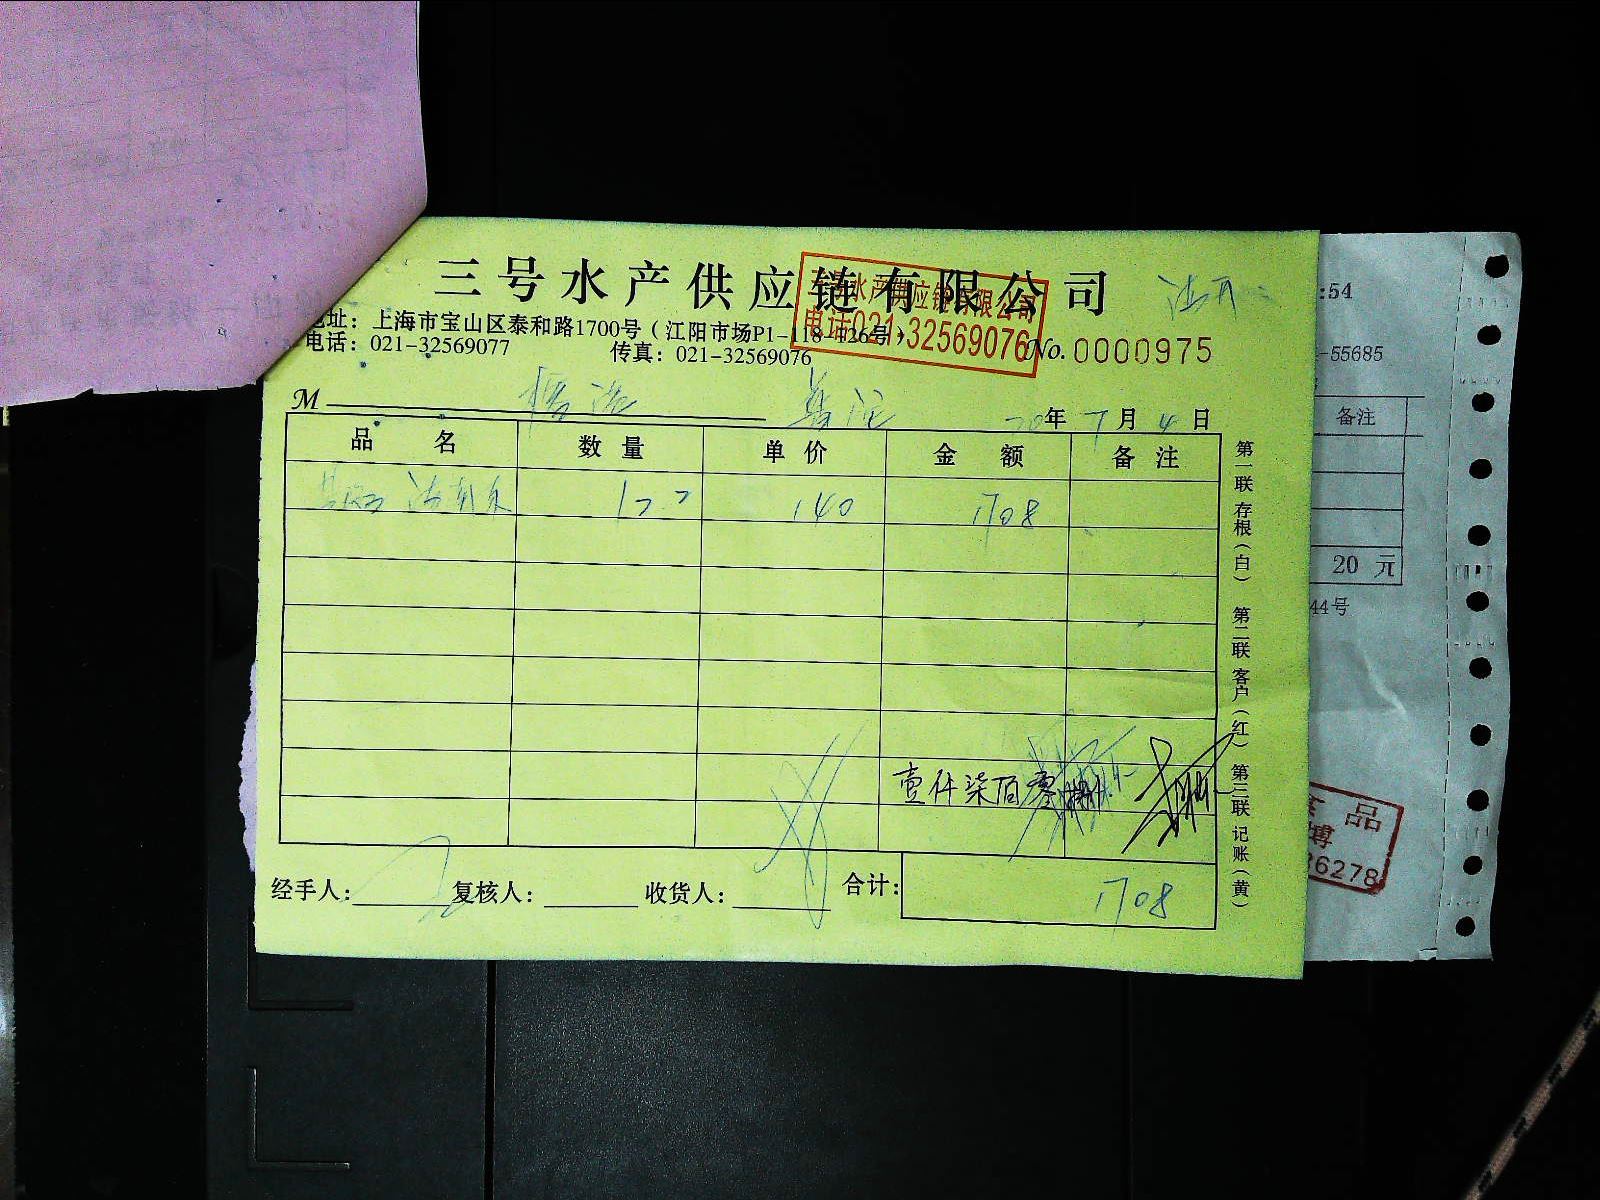 三号水产供应链有限公司
三号水产供应链有限公司
电话021-32569076
地址：上海市宝山区泰和路1700号（江阳市场P1-118-126号）
电话：021-32569077 传真：021-32569076 No.0000975
M 20年7月4日
品名 数量 单价 金额 备注
12.2 140 1708
壹仟柒佰零捌
经手人： 复核人： 收货人： 合计： 1708
第一联 存根（白） 第二联 客户（红） 第三联 记账（黄）
:54
-55685
备注
20 元
44号
品
博
36278